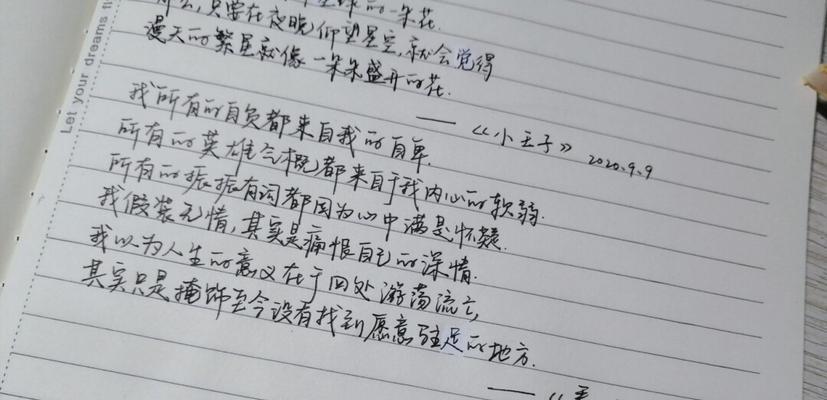 只要在夜晚仰望星空,就会觉得
漫天的繁星就像一朵朵盛开的花.
——《小王子》 2020.9.9
我所有的自负都来自我的自卑.
所有的英雄气概都来自于我内心的软弱.
所有的振振有词都因为心中满是怀疑.
我假装无情,其实是痛恨自己的深情.
我以为人生的意义在于四处游荡流亡,
其实只是掩饰至今没有找到愿意驻足的地方.
Let your dreams